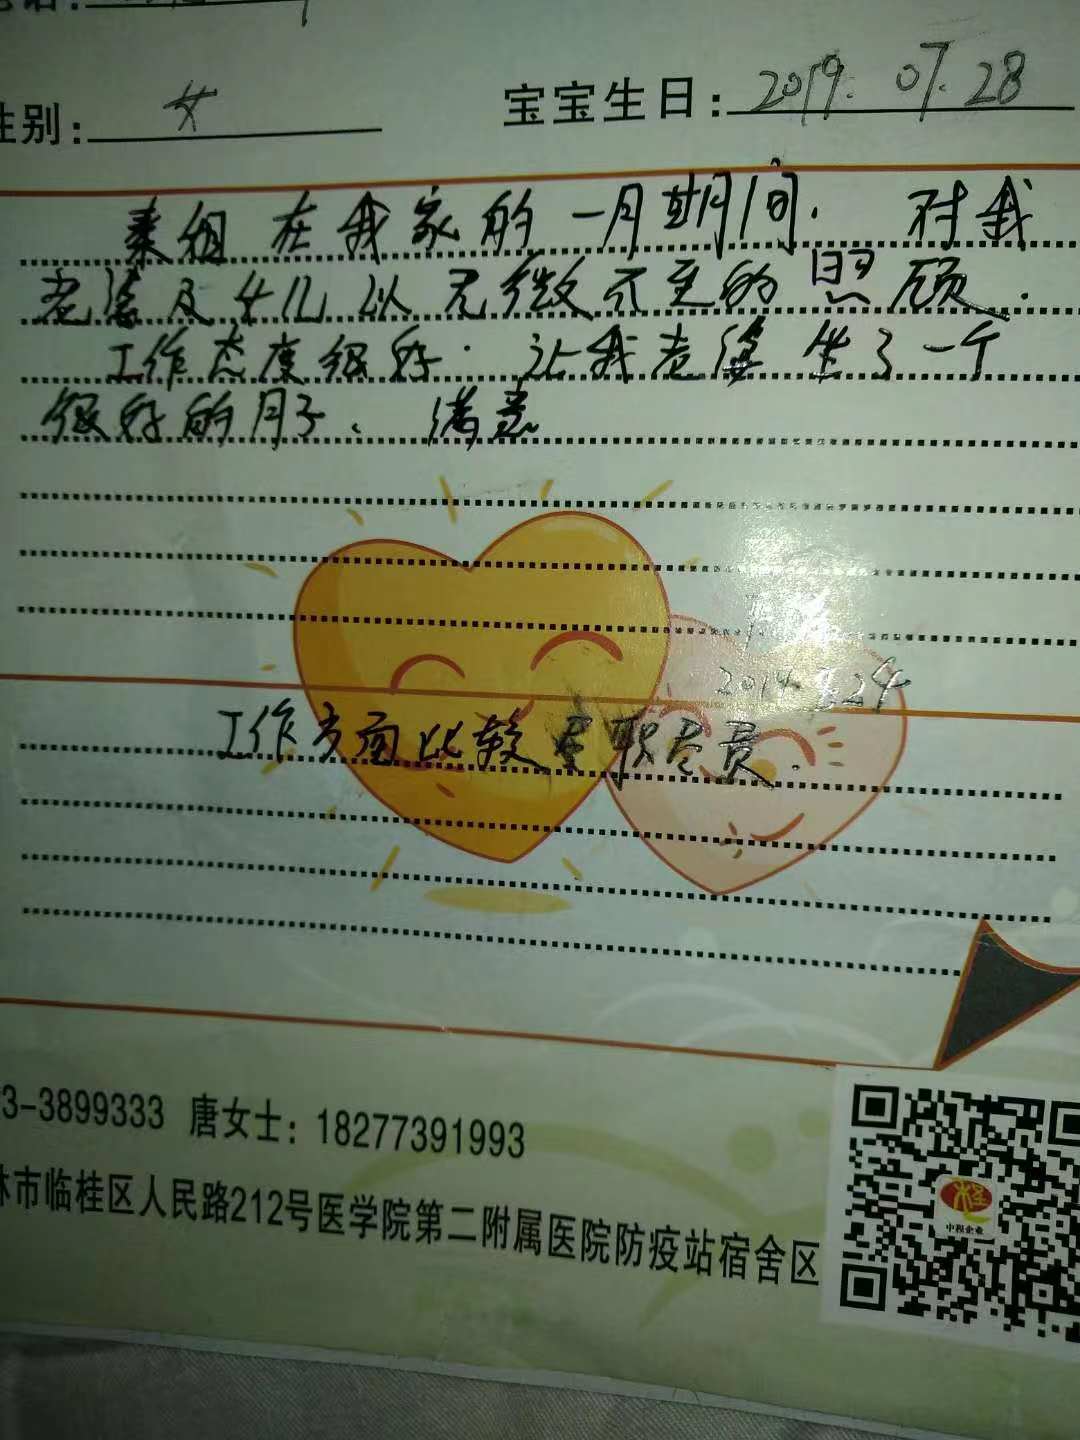 性别: 女 宝宝生日: 2019.07.28
秦姐在我家的一月期间. 对我
老婆及女儿以无微不至的照顾.
工作态度很好. 让我老婆坐了一个
很好的月子. 满意
工作方面比较尽职尽责.
3-3899333 唐女士: 18277391993
林市临桂区人民路212号医学院第二附属医院防疫站宿舍区
中程企业